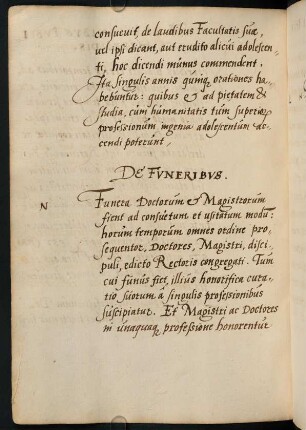 consueuit, de laudibus Facultatis suæ,
uel ipsi dicant, aut erudito alicui adolescen-
ti, hoc dicendi munus commendent.
Ita singulis annis quinq. orationes ha-
bebuntur: quibus & ad pietatem &
studia, cum humanitatis tum superiorum
professionum ingenia adolescentum ac-
cendi poterunt.
DE FVNERIBVS.
N
Funera Doctorum & Magistrorum
fient ad consuetum et usitatum modum:
horum temporum omnes ordine pro-
sequentor, Doctores, Magistri, disci-
puli, edicto Rectoris congregati. Tum
cui funus fiet, illius honorifica cura-
tio suorum à singulis professionibus
suscipiatur. Et Magistri ac Doctores
in unaquaq. professione honorentur